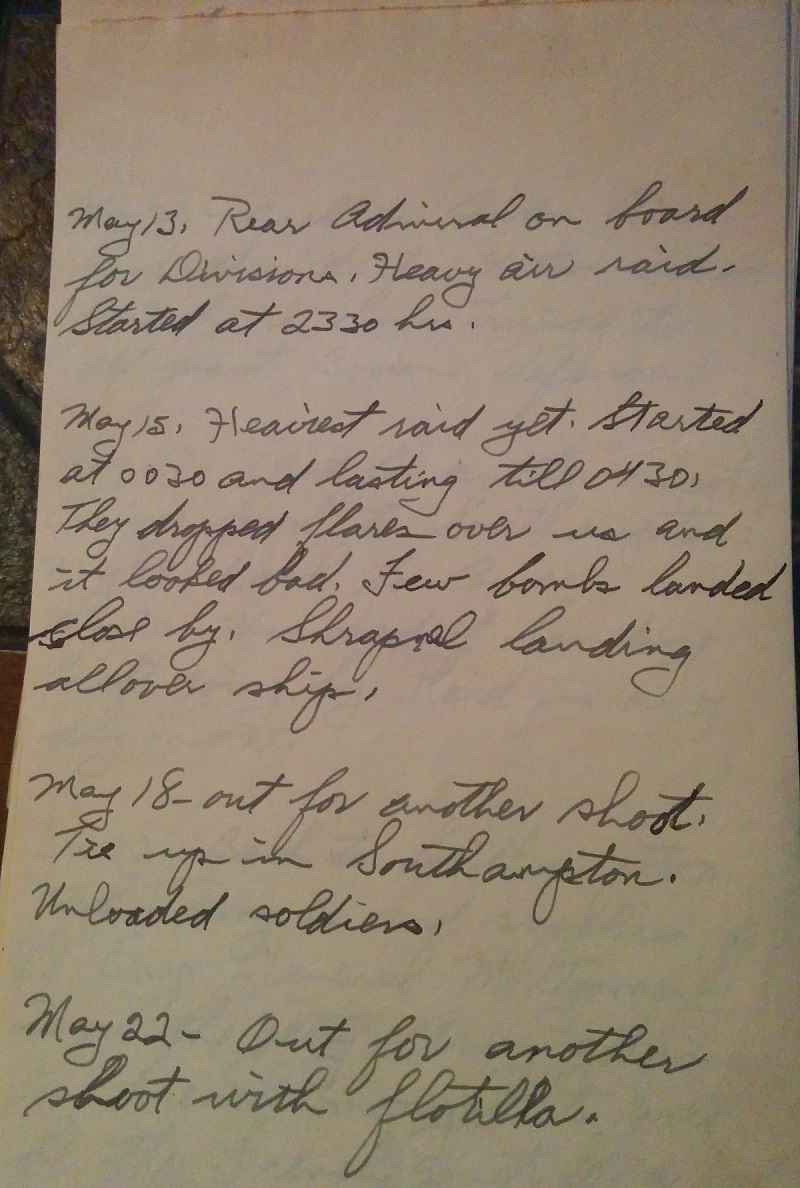 May 13, Rear Admiral on board
for Divisions. Heavy air raid.
Started at 2330 hrs.
May 15, Heaviest raid yet. Started
at 0030 and lasting till 0430,
They dropped flares over us and
it looked bad. Few bombs landed
close by. Shrapnel landing
allover ship,
May 18- out for another shoot.
Tie up in Southampton.
Unloaded soldiers,
May 22- Out for another
shoot with flotilla.